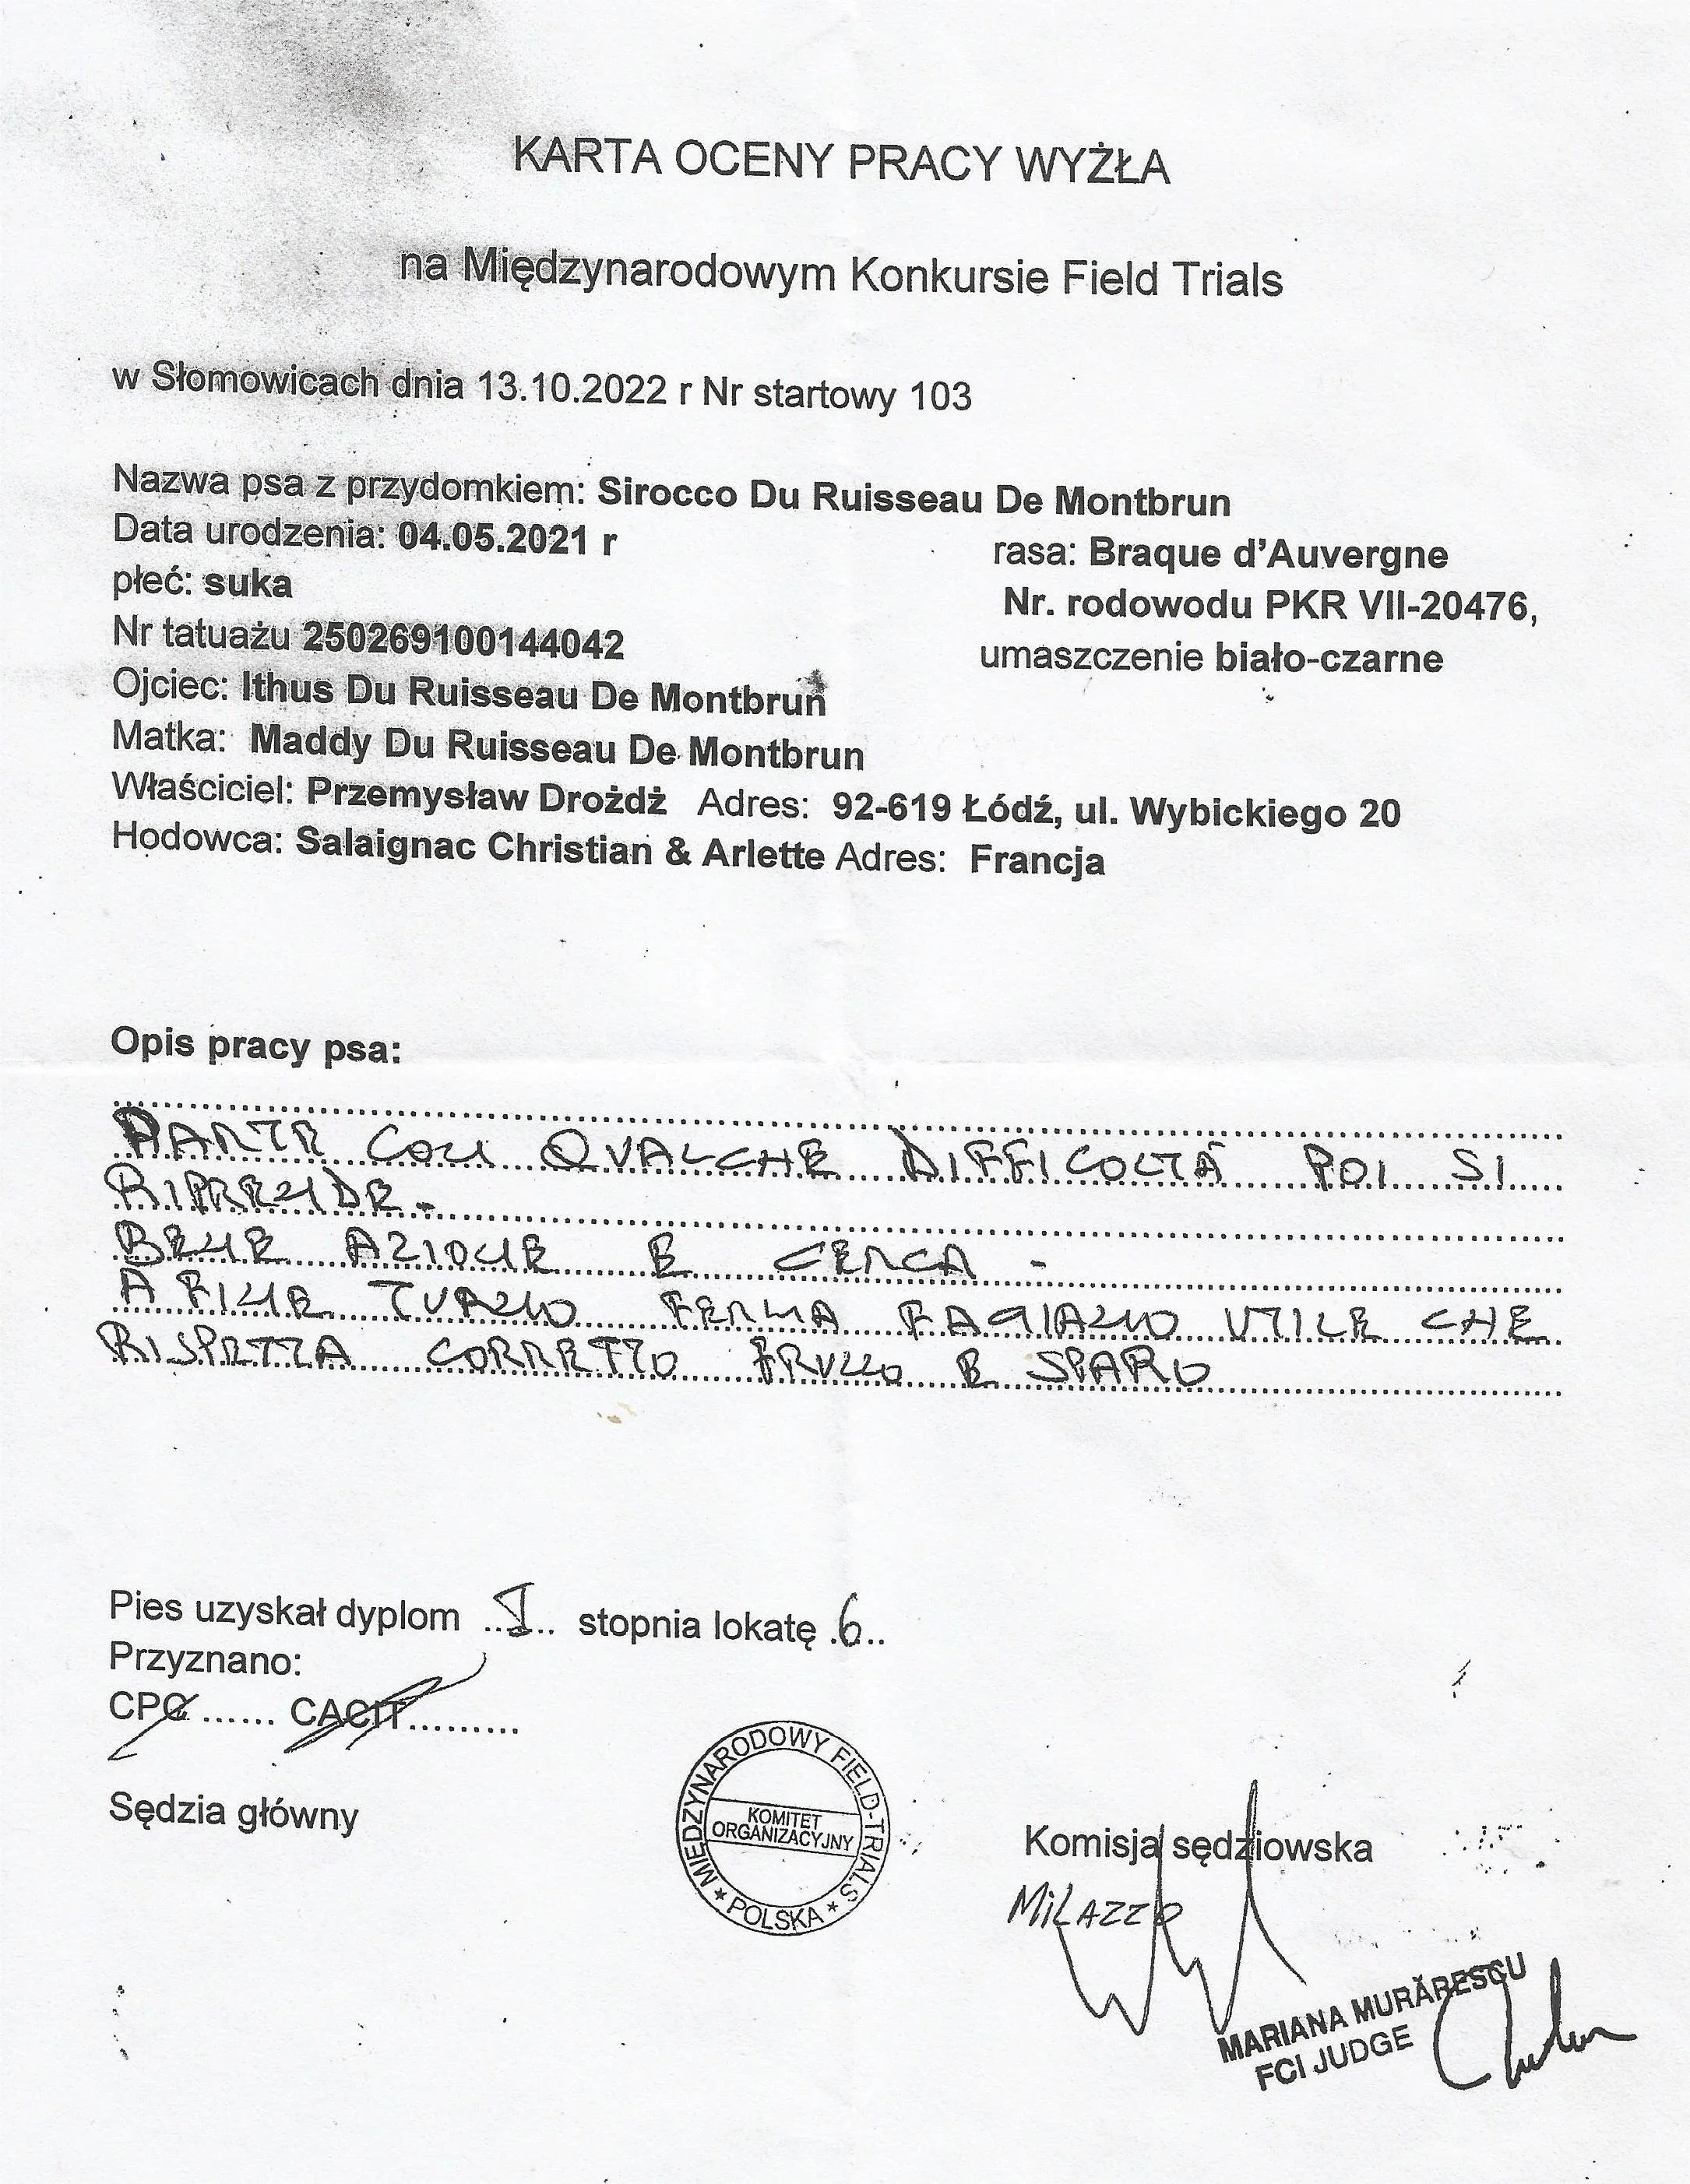 KARTA OCENY PRACY WYŻŁA
na Międzynarodowym Konkursie Field Trials
w Słomowicach dnia 13.10.2022 r Nr startowy 103
Nazwa psa z przydomkiem: Sirocco Du Ruisseau De Montbrun
Data urodzenia: 04.05.2021 r rasa: Braque d'Auvergne
płeć: suka Nr. rodowodu PKR VII-20476,
Nr tatuażu 250269100144042 umaszczenie biało-czarne
Ojciec: Ithus Du Ruisseau De Montbrun
Matka: Maddy Du Ruisseau De Montbrun
Właściciel: Przemysław Drożdż Adres: 92-619 Łódź, ul. Wybickiego 20
Hodowca: Salaignac Christian & Arlette Adres: Francja
Opis pracy psa:
PARTE CON QUALCHE DIFFICOLTÀ POI SI
RIPRENDE.
BENE AZIONE E CERCA -
A FINE TURNO FERMA FAGIANO UTILE CHE
RISPETTA CORRETTO FRULLO E SPARO
Pies uzyskał dyplom ..I.. stopnia lokatę .6..
Przyznano:
CPC ...... CACIT..........
Sędzia główny
MIĘDZYNARODOWY FIELD-TRIALS
KOMITET
ORGANIZACYJNY
* POLSKA *
Komisja sędziowska
MILAZZO
MARIANA MURĂRESCU
FCI JUDGE